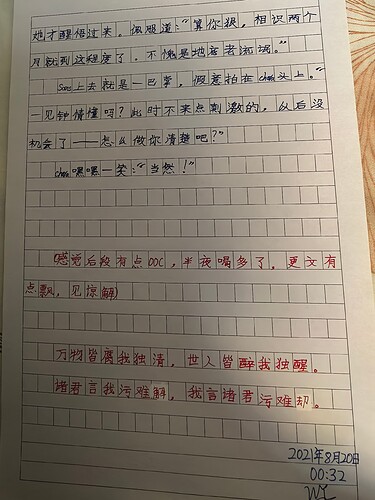 她才醒悟过来。佩服道：“算你狠，相识两个
月就到这程度了，不愧是地底老流氓。”
上去就是一巴掌，假意拍在chen头上。“
一见钟情懂吗？此时不来点刺激的，以后没
机会了——怎么做你清楚吧？”
嘿嘿一笑：“当然！”
（感觉后段有点OOC，半夜喝多了，更文有
点飘，见谅解）
万物皆腐我独清，世人皆醉我独醒。
诸君言我污难解，我言诸君污难却。
2021年8月20日
00:32